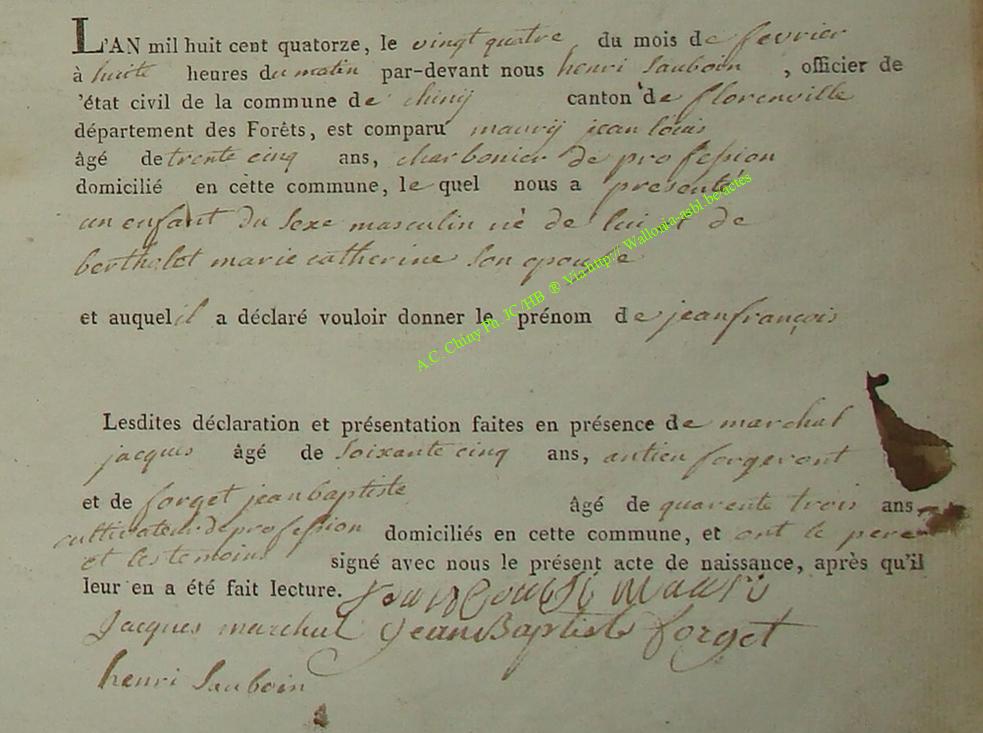 L'AN mil huit cent quatorze, le vingt quatre du mois de fevrier
à huite heures du matin par-devant nous henri Sauboin , officier de
'état civil de la commune de chinij canton de florenville
département des Forêts, est comparu maurij jean louis
âgé de trente cinq ans, charbonier de profession
domicilié en cette commune, le quel nous a presenté
un enfant du Sexe masculin né de lui et de
bertholet marie catherine Son epouse
et auquel il a déclaré vouloir donner le prénom de jean françois
Lesdites déclaration et présentation faites en présence de marchal
jacques âgé de Soixante cinq ans, antien forgeront
et de forget jean baptiste âgé de quarente trois ans
cultivateur de profession domiciliés en cette commune, et ont le pere
et les temoins signé avec nous le présent acte de naissance, après qu'il
leur en a été fait lecture. Jean Mauri
Jacques marchal Jean Baptiste forget
henri Sauboin
A.C. Chiny Ph. JC/HB ® Via http:// Wallonia-asbl.be/actes